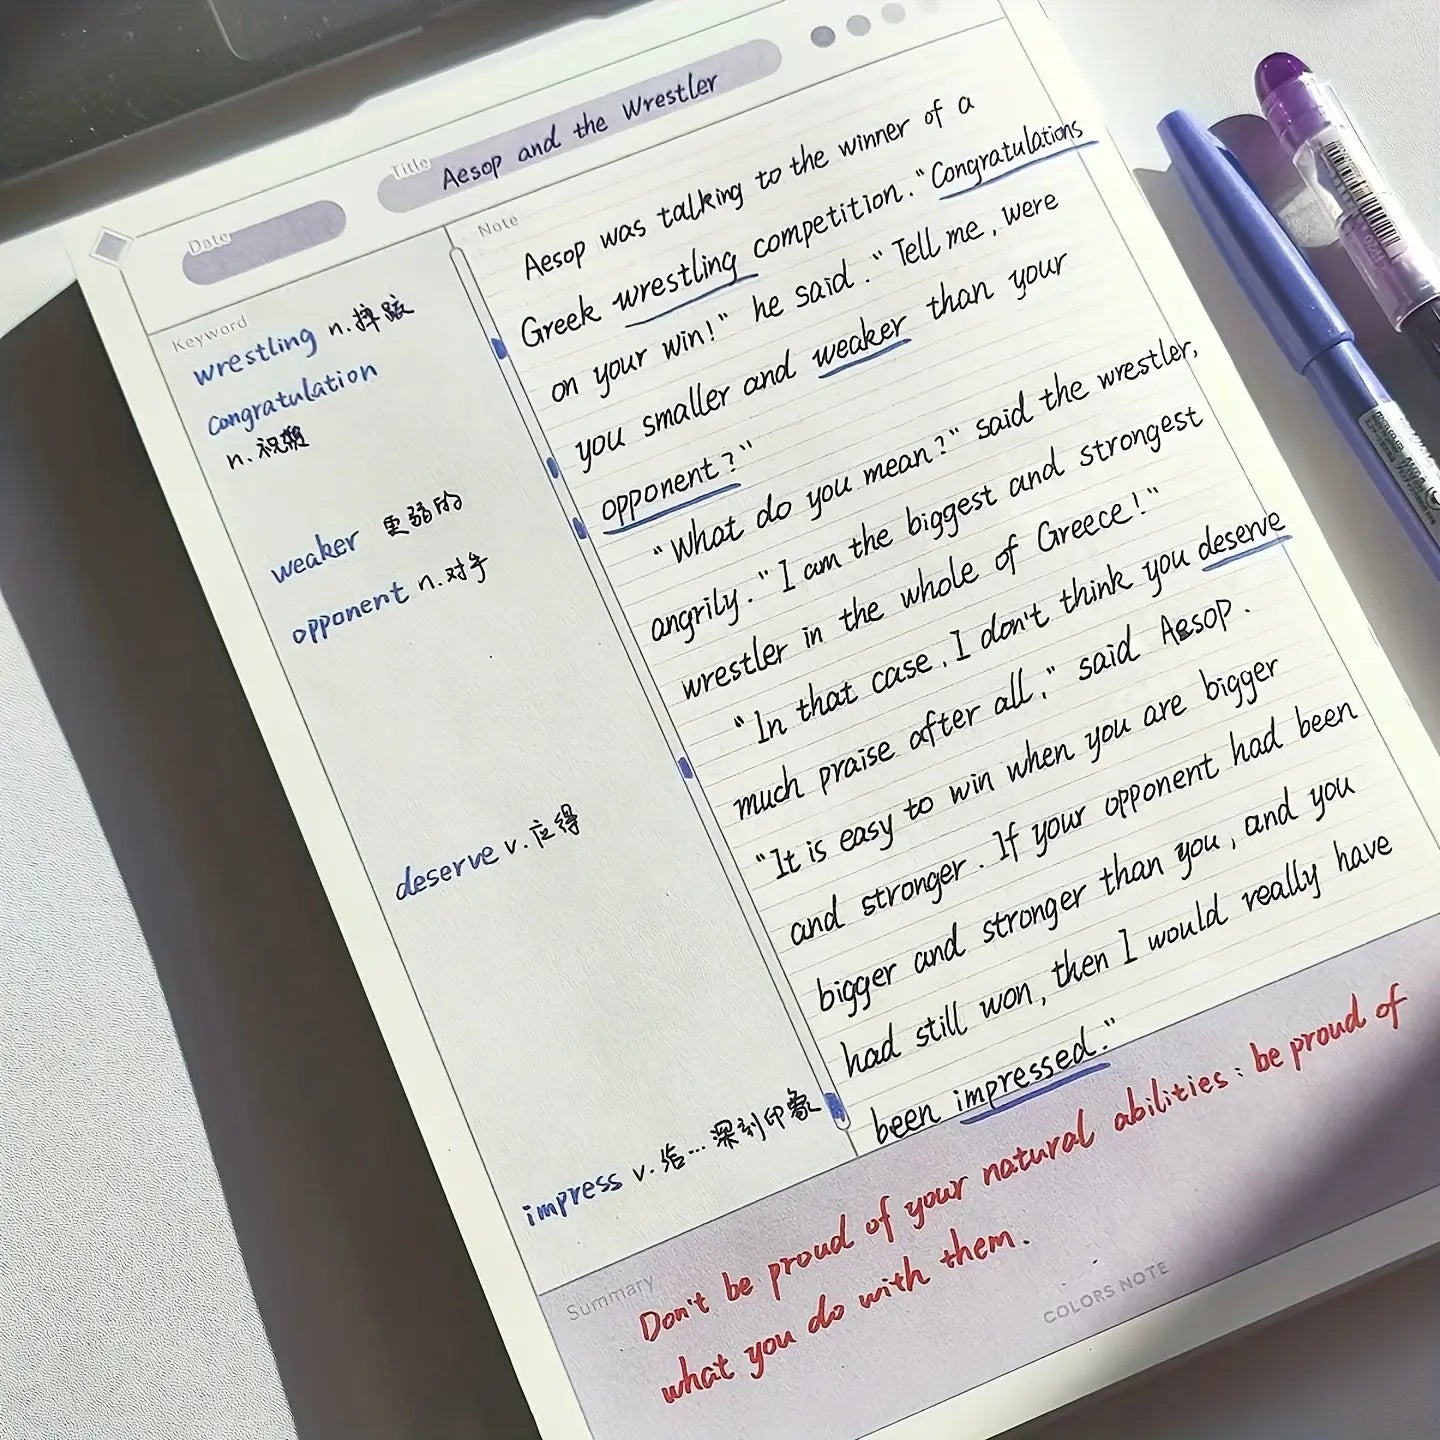 Title
Aesop and the Wrestler
Date
Keyword
wrestling n.摔跤
congratulation
n.祝贺
weaker 更弱的
opponent n.对手
deserve v.应得
impress v.给…深刻印象
Note
Aesop was talking to the winner of a
Greek wrestling competition. "Congratulations
on your win!" he said. "Tell me, were
you smaller and weaker than your
opponent?"
"What do you mean?" said the wrestler,
angrily. "I am the biggest and strongest
wrestler in the whole of Greece!"
"In that case, I don't think you deserve
much praise after all," said Aesop.
"It is easy to win when you are bigger
and stronger. If your opponent had been
bigger and stronger than you, and you
had still won, then I would really have
been impressed."
Summary
Don't be proud of your natural abilities: be proud of
what you do with them.
COLORS NOTE